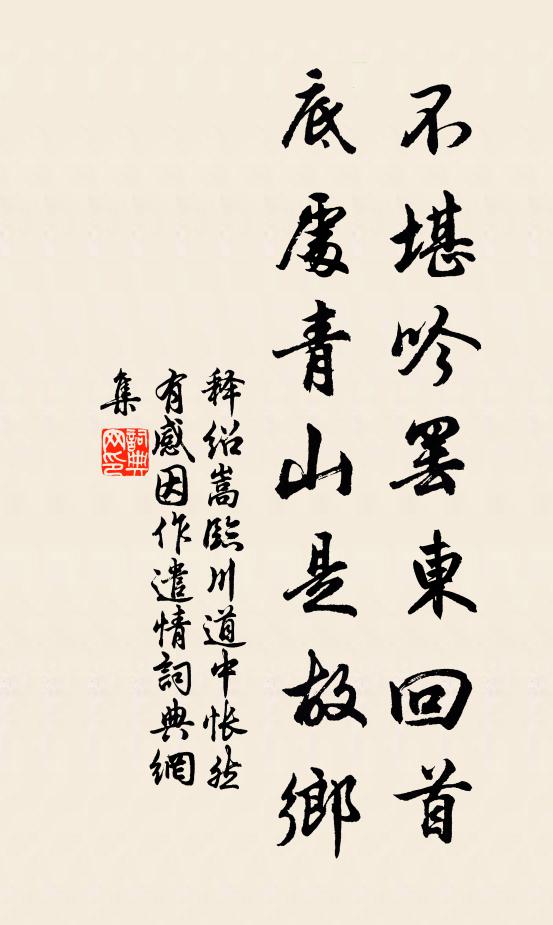 不堪吟罢東回首
底處青山是故鄉
释绍嵩臨川道中怅然
有感因作遣情詞典網
集
詞典
网印